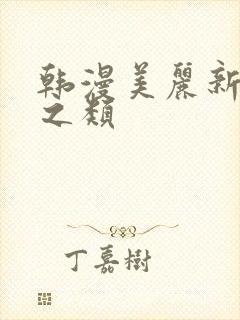 韩漫美麗新
之類
丁嘉樹